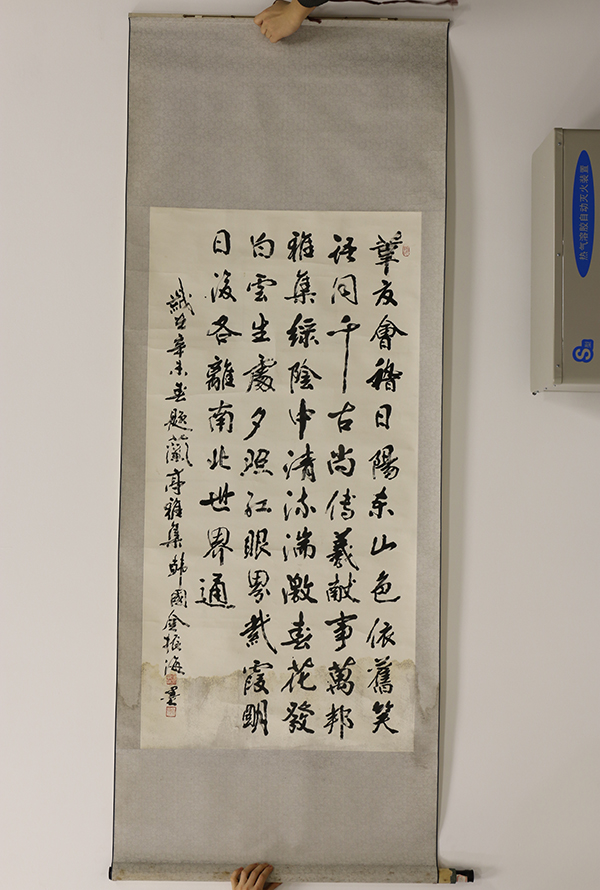 鞏友會稽日陽東山色依舊笑
語同千古尚傳羲獻事萬邦
雅集綠陰中清流湍激春花發
白雲生處夕照紅眼界戴霞明
日後各離南北世界通
歲在辛未春題蘭亭雅集韓國金振海墨
热气溶胶自动灭火装置
S